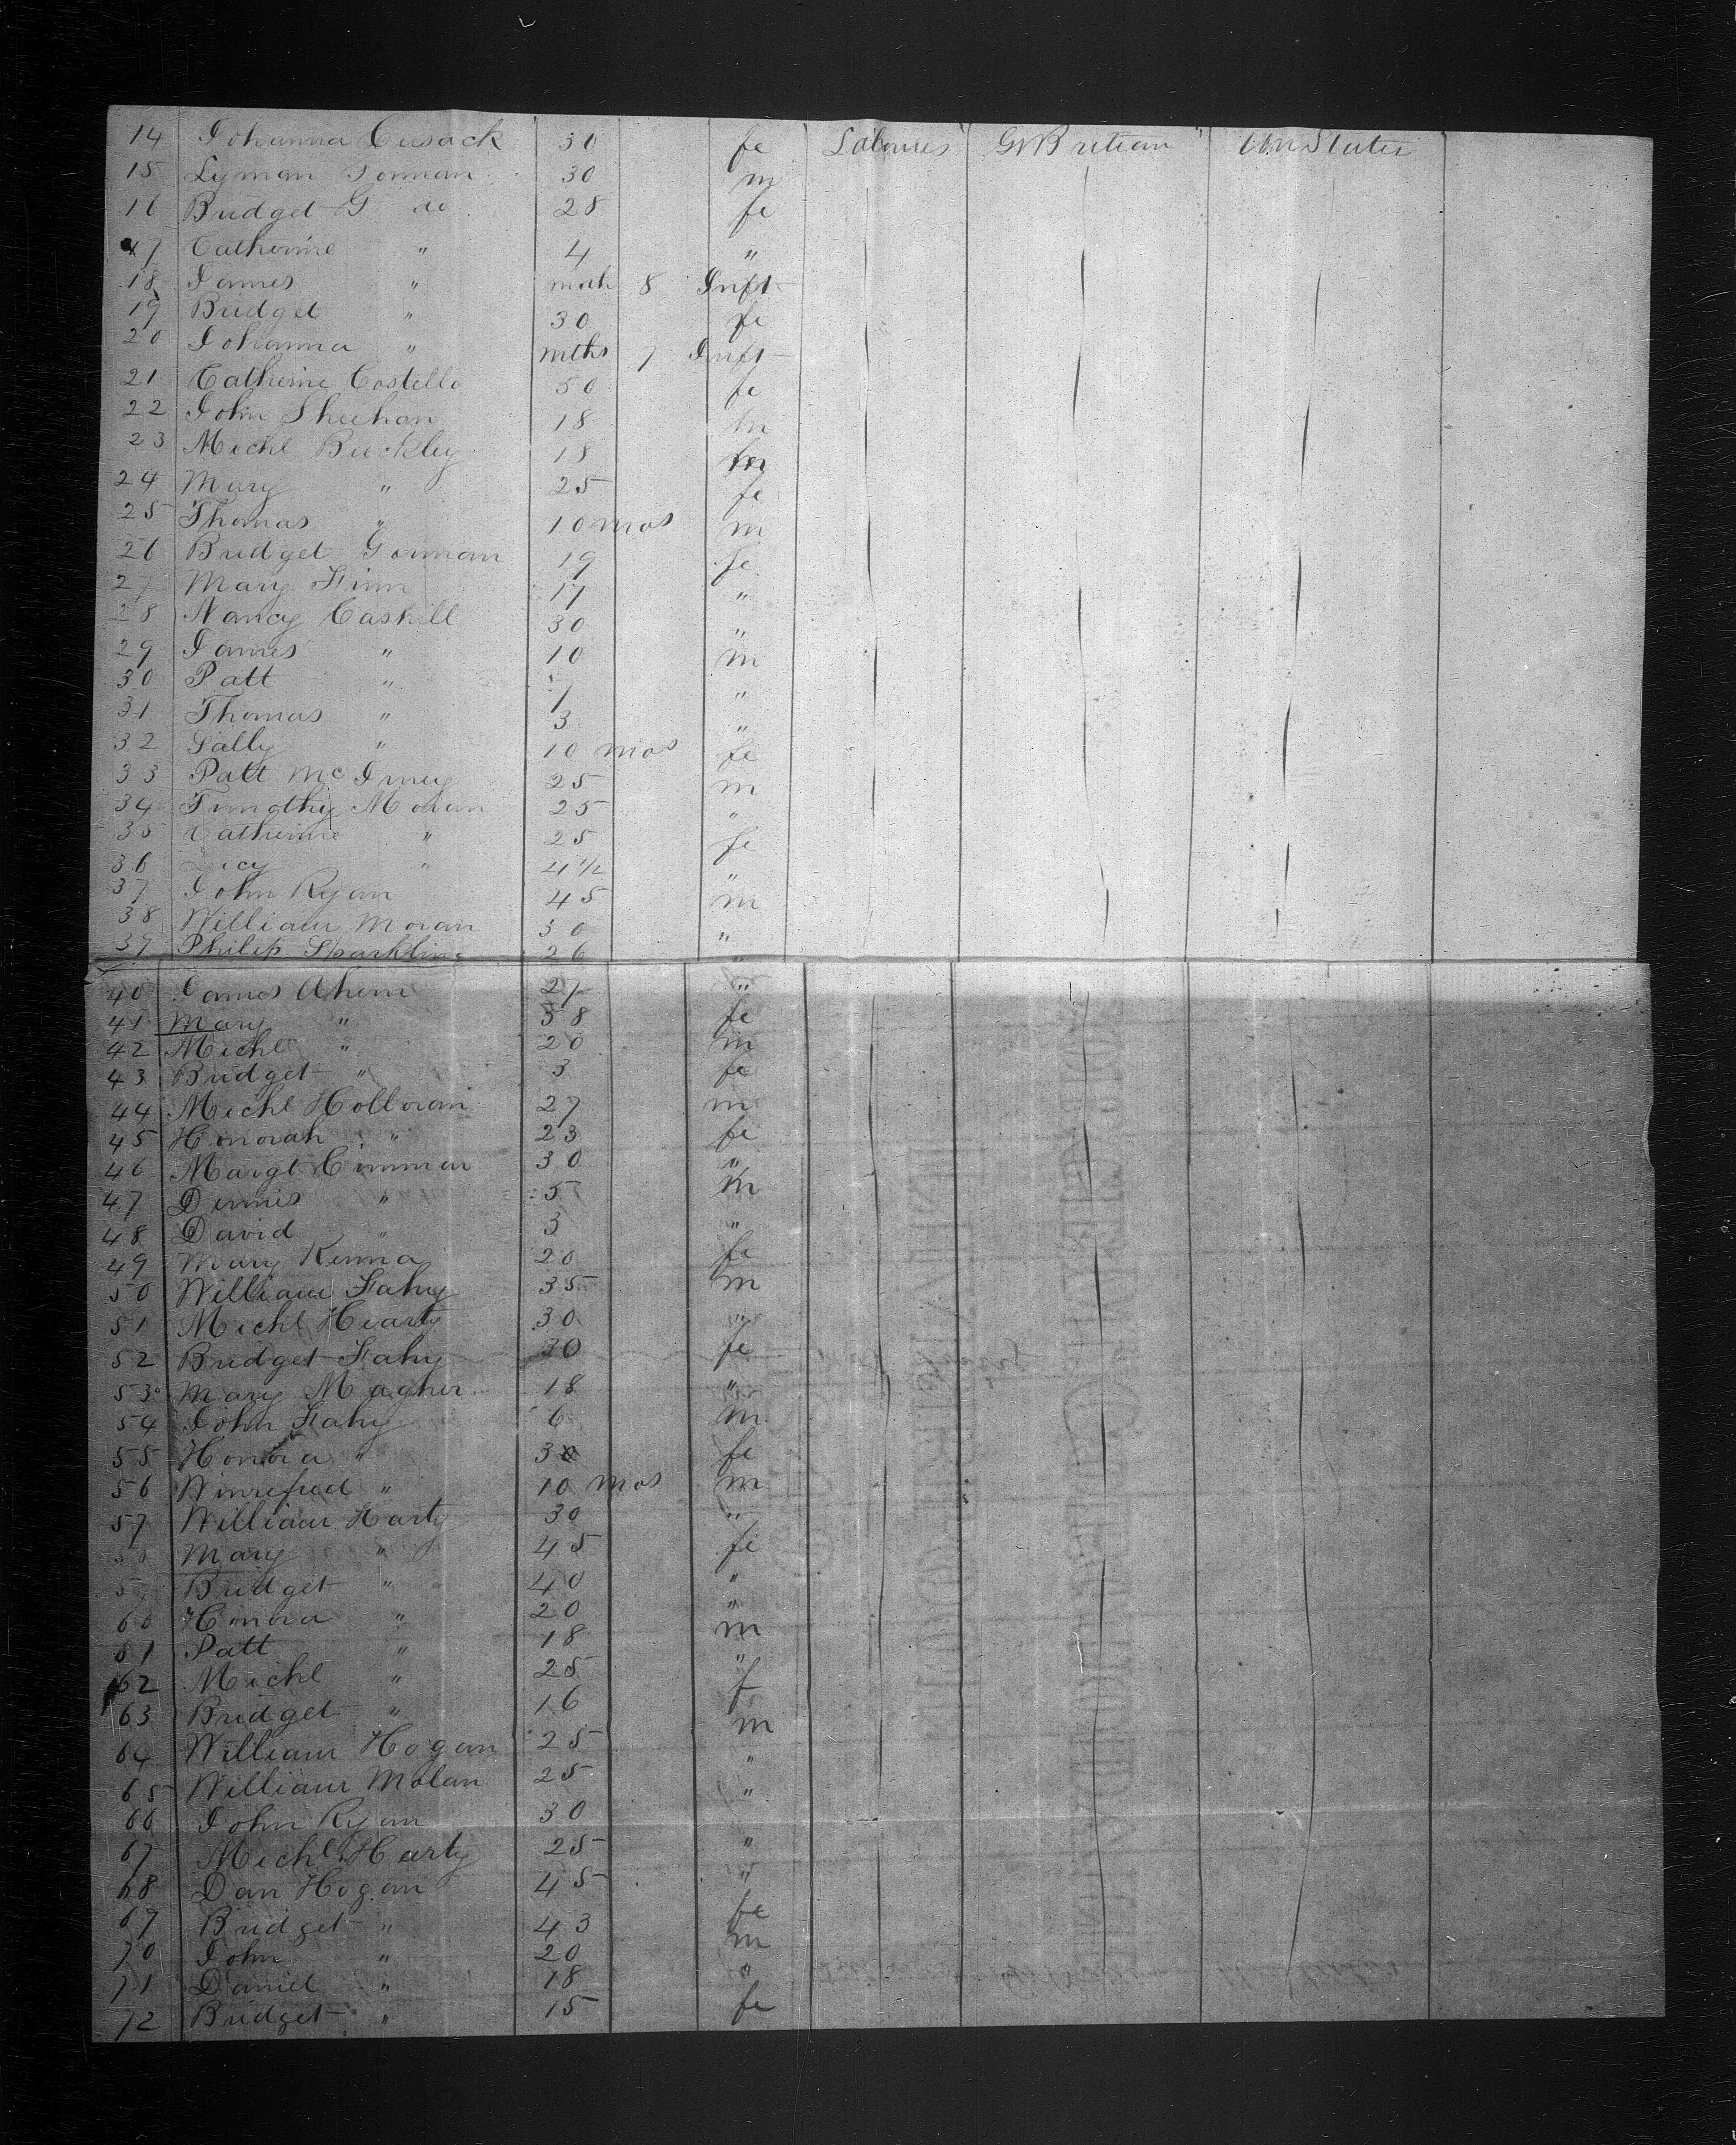 14 Johanna Cusack 30 fe Laboures Gt Britian Un States
15 Lyman Gorman 30 m
16 Bridget G do 28 fe
17 Catherine " 4 "
18 James " mth 8 Inft
19 Bridget " 30 fe
20 Johanna " mths 7 Inft
21 Catherine Costello 50 fe
22 John Sheehan 18 m
23 Michl Buckley 18 m
24 Mary " 25 fe
25 Thomas " 10 mos m
26 Bridget Gorman 19 fe
27 Mary Finn 17 "
28 Nancy Caskill 30 "
29 James " 10 m
30 Patt " 7 "
31 Thomas " 3 "
32 Sally " 10 mos fe
33 Patt Mc Inney 25 m
34 Timothy Moran 25 "
35 Catherine " 25 fe
36 Lucy " 4 1/2 "
37 John Ryan 45 m
38 William Moran 30 "
39 Philip Sparkling 26 "
40 James Ahern 27 "
41 Mary " 38 fe
42 Michl " 20 m
43 Bridget " 3 fe
44 Michl Holloran 27 m
45 Honorah " 23 fe
46 Margt Cimmar 30 "
47 Dennis " 5 m
48 David " 3 "
49 Mary Kenna 20 fe
50 William Fahy 35 m
51 Michl Hearty 30 "
52 Bridget Fahy 30 fe
53 Mary Magher 18 "
54 John Fahy 6 m
55 Honora " 30 fe
56 Winrefred " 10 mos m
57 William Harty 30 "
58 Mary " 45 fe
59 Bridget " 40 "
60 Honora " 20 "
61 Patt " 18 m
62 Michl " 25 "
63 Bridget " 16 f
64 William Hogan 25 m
65 William Molan 25 "
66 John Ryan 30 "
67 Michl Harty 25 "
68 Dan Hogan 45 "
69 Bridget " 43 fe
70 John " 20 m
71 Daniel " 18 "
72 Bridget " 15 fe